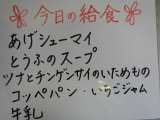 今日の給食
あげシューマイ
とうふのスープ
ツナとチンゲンサイのいためもの
コッペパン・いちごジャム
牛乳